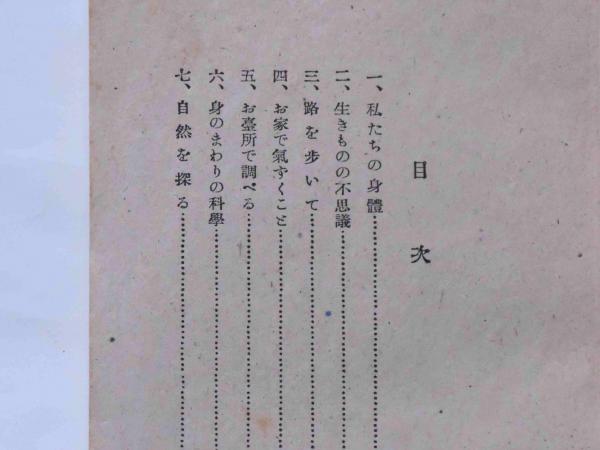 目次
一、私たちの身體……………………
二、生きものの不思議……………………
三、路を歩いて……………………
四、お家で氣ずくこと……………………
五、お臺所で調べる……………………
六、身のまわりの科學……………………
七、自然を探る……………………